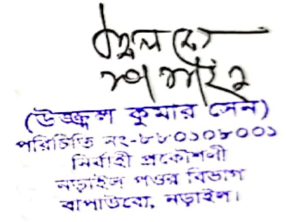 (উজ্জ্বল কুমার সেন)
পরিচিতি নং-৮৮০১০৮০০১
নির্বাহী প্রকৌশলী
নড়াইল পওর বিভাগ
বাপাউবো, নড়াইল।